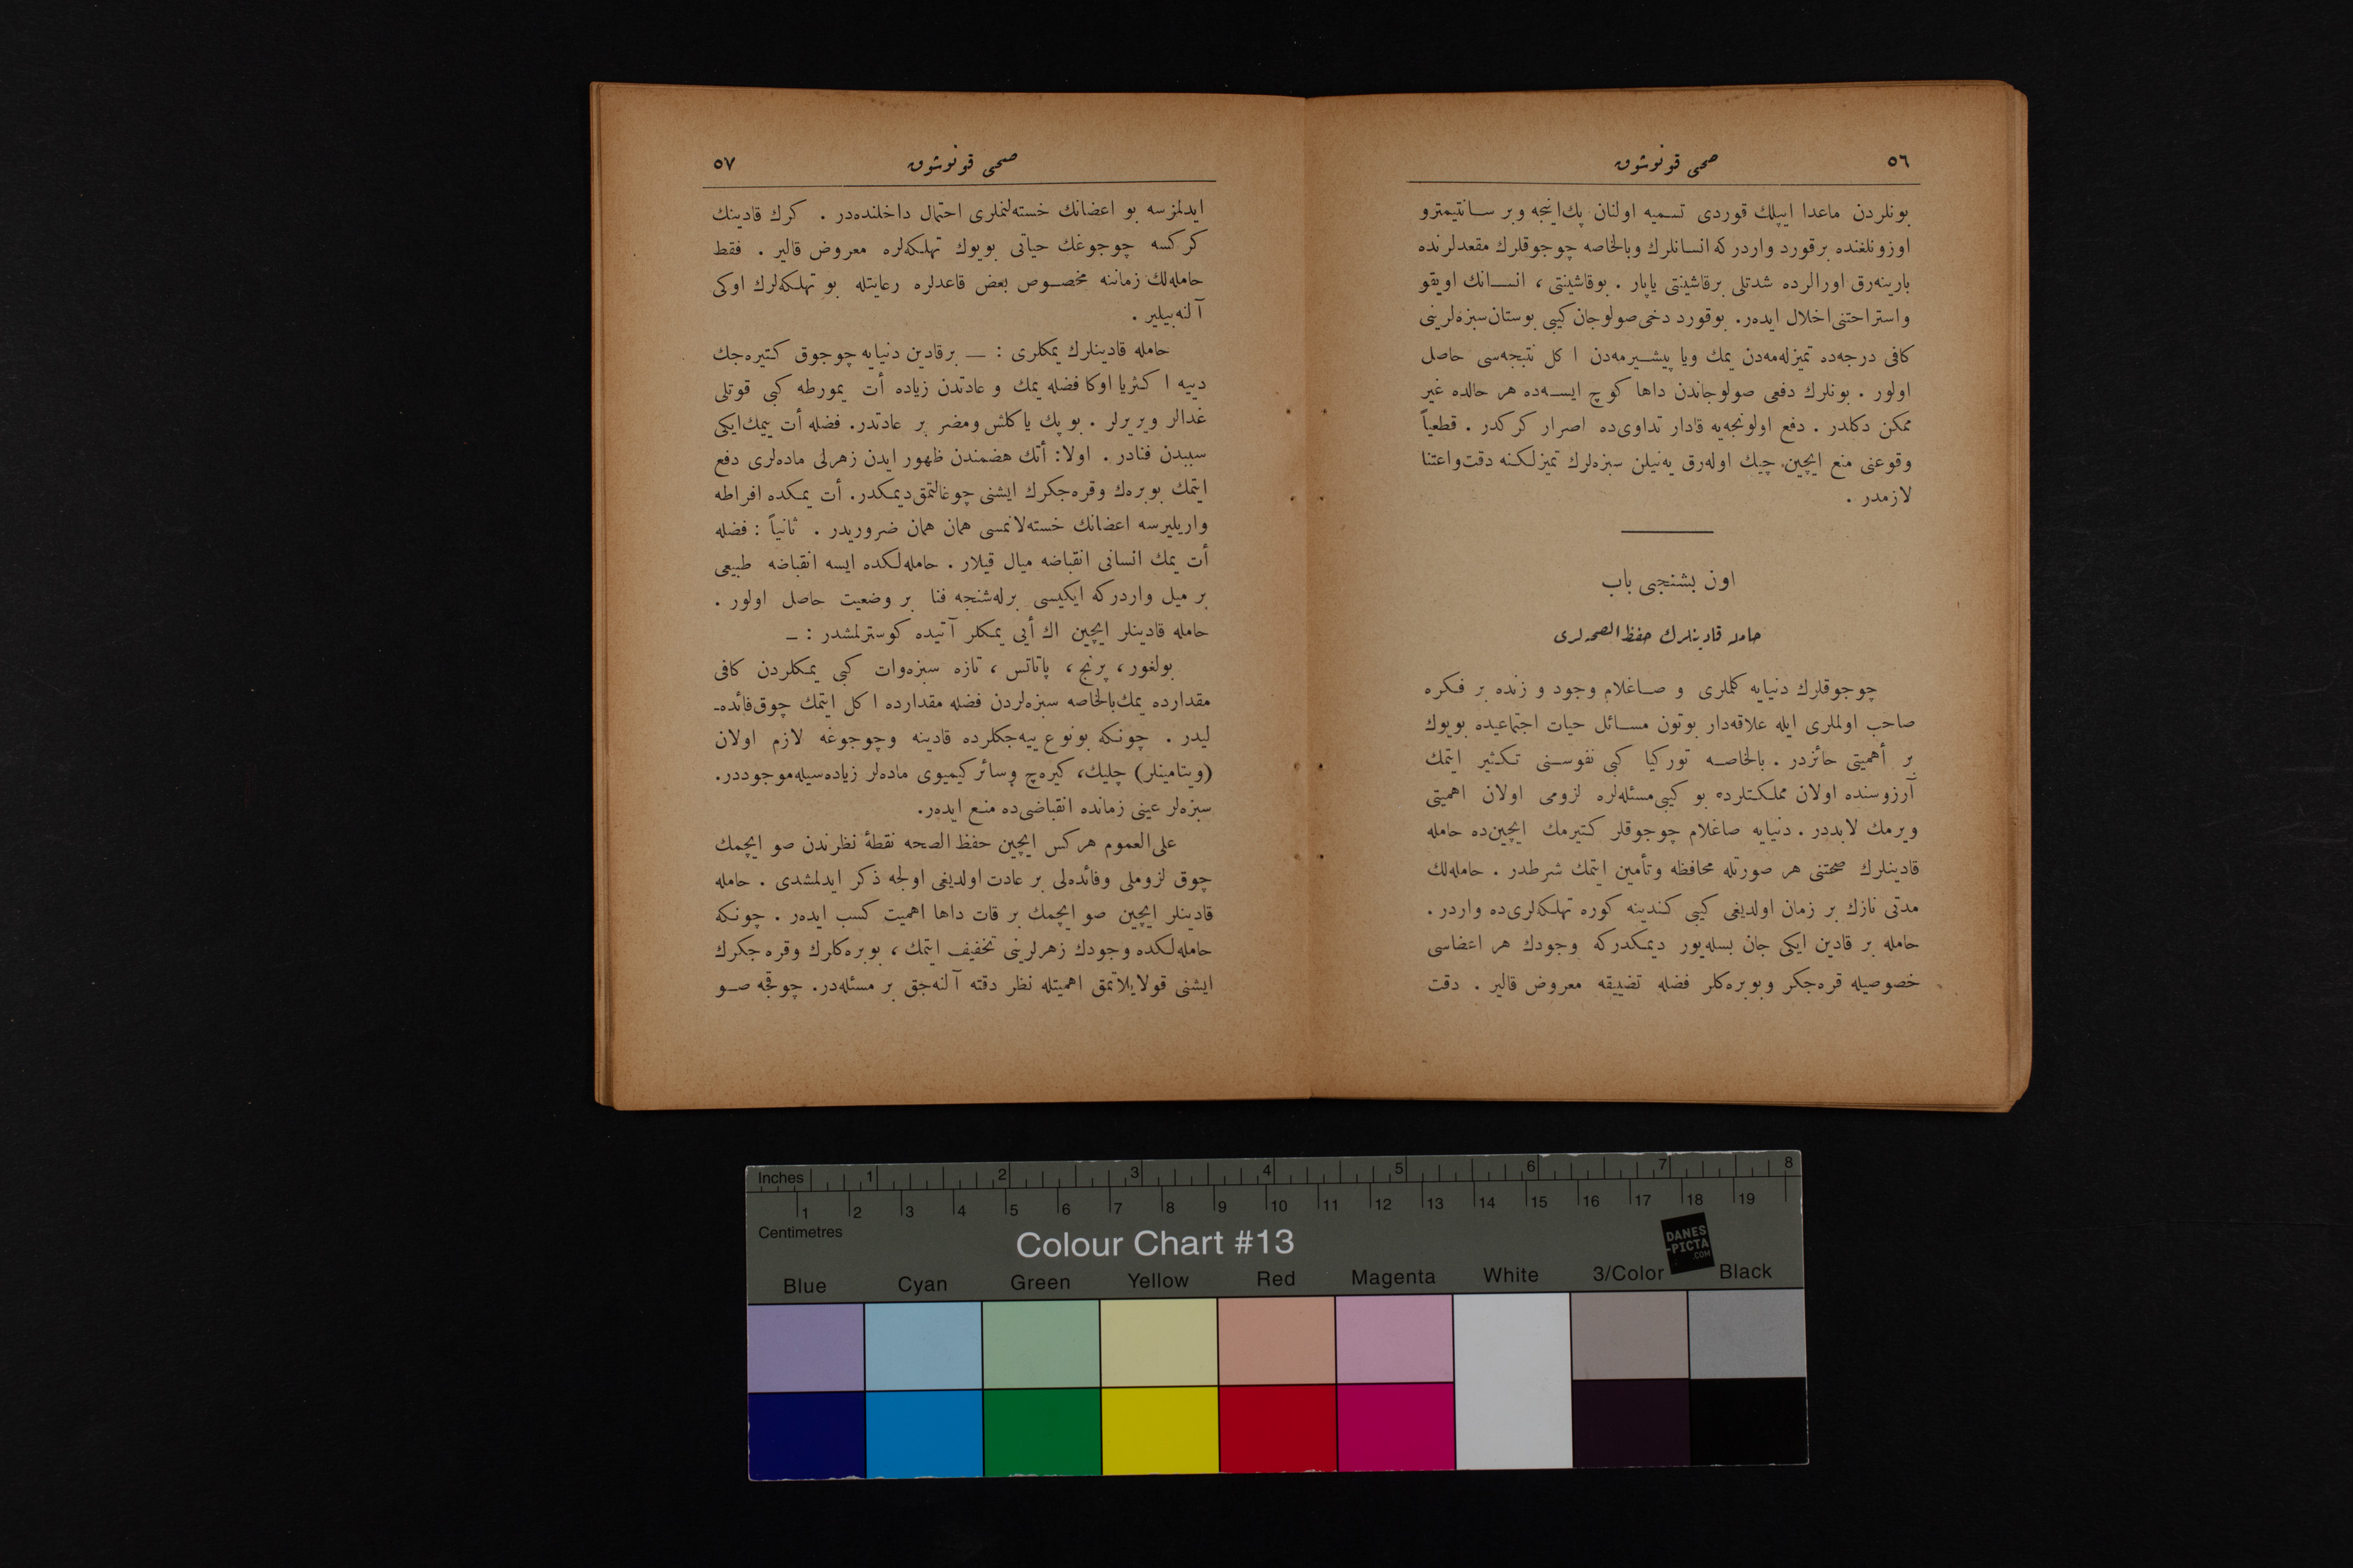 ٥٦
صحی قونوشوق
بونلردن ماعدا ایپلك قوردی تسمیه اولنان پك‌اینجه وبر سانتیمترو
اوزونلغنده برقورد واردركه انسانلرك وبالخاصه چوجوقلرك مقعدلرنده
بارینه‌رق اورالرده شدتلی برقاشینتی یاپار . بوقاشینتی ، انسانك اویقو
واستراحتنی اخلال ایده‌ر. بوقورد دخی صولوجان کیبی بوستان‌سبزه‌لرینی
کافی درجه‌ده تمیزله‌مه‌دن یمك ویا پیشیرمه‌دن اکل نتیجه‌سی حاصل
اولور . بونلرك دفعی صولوجاندن داها کوچ ایسه‌ده هر حالده غیر
ممکن دکلدر . دفع اولونجه‌یه قادار تداوی‌ده اصرار کرکدر . قطعیاً
وقوعنی منع ایچین، چیك اوله‌رق یه‌نیلن سبزه‌لرك تمیزلکنه دقت‌واعتنا
لازمدر .
اون بشنجی باب
حامله قادینلرك حفظ الصحه‌لری
چوجوقلرك دنیایه کلملری و صاغلام وجود و زنده بر فکره
صاحب اولملری ایله علاقه‌دار بوتون مسائل حیات اجتماعیده بویوك
بر أهمیتی حائزدر . بالخاصه تورکیا کبی نفوسنی تکثیر ایتمك
آرزوسنده اولان مملکتلرده بو کیبی‌مسئله‌لره لزومی اولان اهمیتی
ویرمك لابددر . دنیایه صاغلام چوجوقلر کتیرمك ایچین‌ده حامله
قادینلرك صحتنی هر صورتله محافظه وتأمین ایتمك شرطدر . حامله‌لك
مدتی نازك بر زمان اولدیغی کیبی کندینه کوره تهلکه‌لری‌ده واردر .
حامله بر قادین ایکی جان بسله‌یور دیمکدرکه وجودك هر اعضاسی
خصوصیله قره‌جکر وبوبره‌کلر فضله تضییقه معروض قالیر . دقت
صحی قونوشوق
٥٧
ایدلمزسه بو اعضانك خسته‌لنملری احتمال داخلنده‌در . کرك قادینك
کرکسه چوجوغك حیاتی بویوك تهلکه‌لره معروض قالیر . فقط
حامله‌لك زماننه مخصوص بعض قاعدلره رعایتله بو تهلکه‌لرك اوکی
آلنه‌بیلیر .
حامله قادینلرك یمکلری : — برقادین دنیایه چوجوق کتیره‌جك
دییه اکثریا اوکا فضله یمك و عادتدن زیاده أت یمورطه کبی قوتلی
غدالر ویریرلر . بو پك یاکلش ومضر بر عادتدر. فضله أت ییمك‌ایکی
سببدن فنادر . اولا: أتك هضمندن ظهور ایدن زهرلی ماده‌لری دفع
ایتمك بوبره‌ك وقره‌جکرك ایشنی چوغالتمق‌دیمکدر. أت یمکده افراطه
واریلیرسه اعضانك خسته‌لانمسی همان همان ضروریدر . ثانیاً : فضله
أت یمك انسانی انقباضه میال قیلار . حامله‌لکده ایسه انقباضه طبیعی
بر میل واردرکه ایکیسی برله‌شنجه فنا بر وضعیت حاصل اولور .
حامله قادینلر ایچین اك أیی یمکلر آتیده کوسترلمشدر : —
بولغور، پرنج، پاتاتس، تازه سبزه‌وات کبی یمکلردن کافی
مقدارده یمك‌بالخاصه سبزه‌لردن فضله مقدارده اکل ایتمك چوق‌فائده‌ـ
لیدر . چونکه بونوع ییه‌جکلرده قادینه وچوجوغه لازم اولان
(ویتامینلر) چلیك، کیره‌چ وسائر کیمیوی ماده‌لر زیاده‌سیله‌موجوددر.
سبزه‌لر عینی زمانده انقباضی‌ده منع ایده‌ر.
علی‌العموم هرکس ایچین حفظ الصحه نقطهٔ نظرندن صو ایچمك
چوق لزوملی وفائده‌لی بر عادت اولدیغی اولجه ذکر ایدلمشدی . حامله
قادینلر ایچین صو ایچمك بر قات داها اهمیت کسب ایده‌ر . چونکه
حامله‌لکده وجودك زهرلرینی تخفیف ایتمك ، بوبره‌کلرك وقره جکرك
ایشنی قولایلاتمق اهمیتله نظر دقته آلنه‌جق بر مسئله‌در. چوقجه صو
Inches 1 2 3 4 5 6 7 8
1 2 3 4 5 6 7 8 9 10 11 12 13 14 15 16 17 18 19
Centimetres
Colour Chart #13
DANES
-PICTA
.COM
Blue Cyan Green Yellow Red Magenta White 3/Color Black